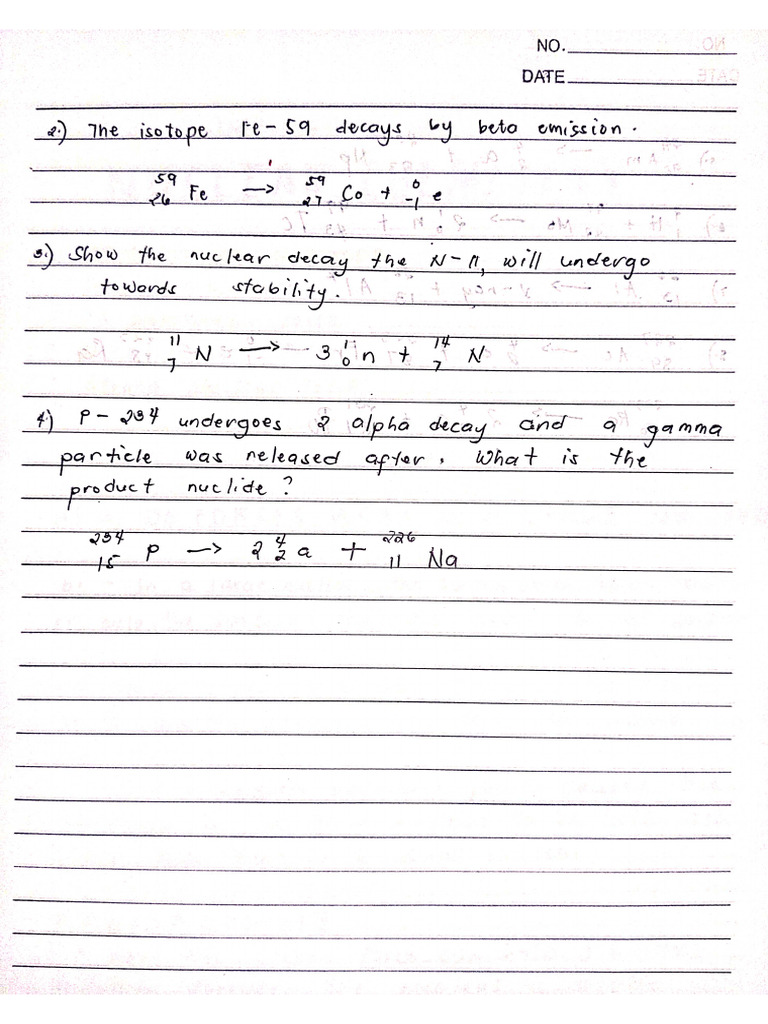 NO.
DATE
2.) The isotope Fe-59 decays by beta emission.
⁵⁹₂₆ Fe → ⁵⁹₂₇ Co + ⁰₋₁ e
3.) Show the nuclear decay the N-11, will undergo
towards stability.
¹¹₇ N → 3 ¹₀ n + ¹⁴₇ N
4.) P-234 undergoes 2 alpha decay and a gamma
particle was released after. What is the
product nuclide?
²³⁴₁₅ P → 2 ⁴₂ a + ²²⁶₁₁ Na